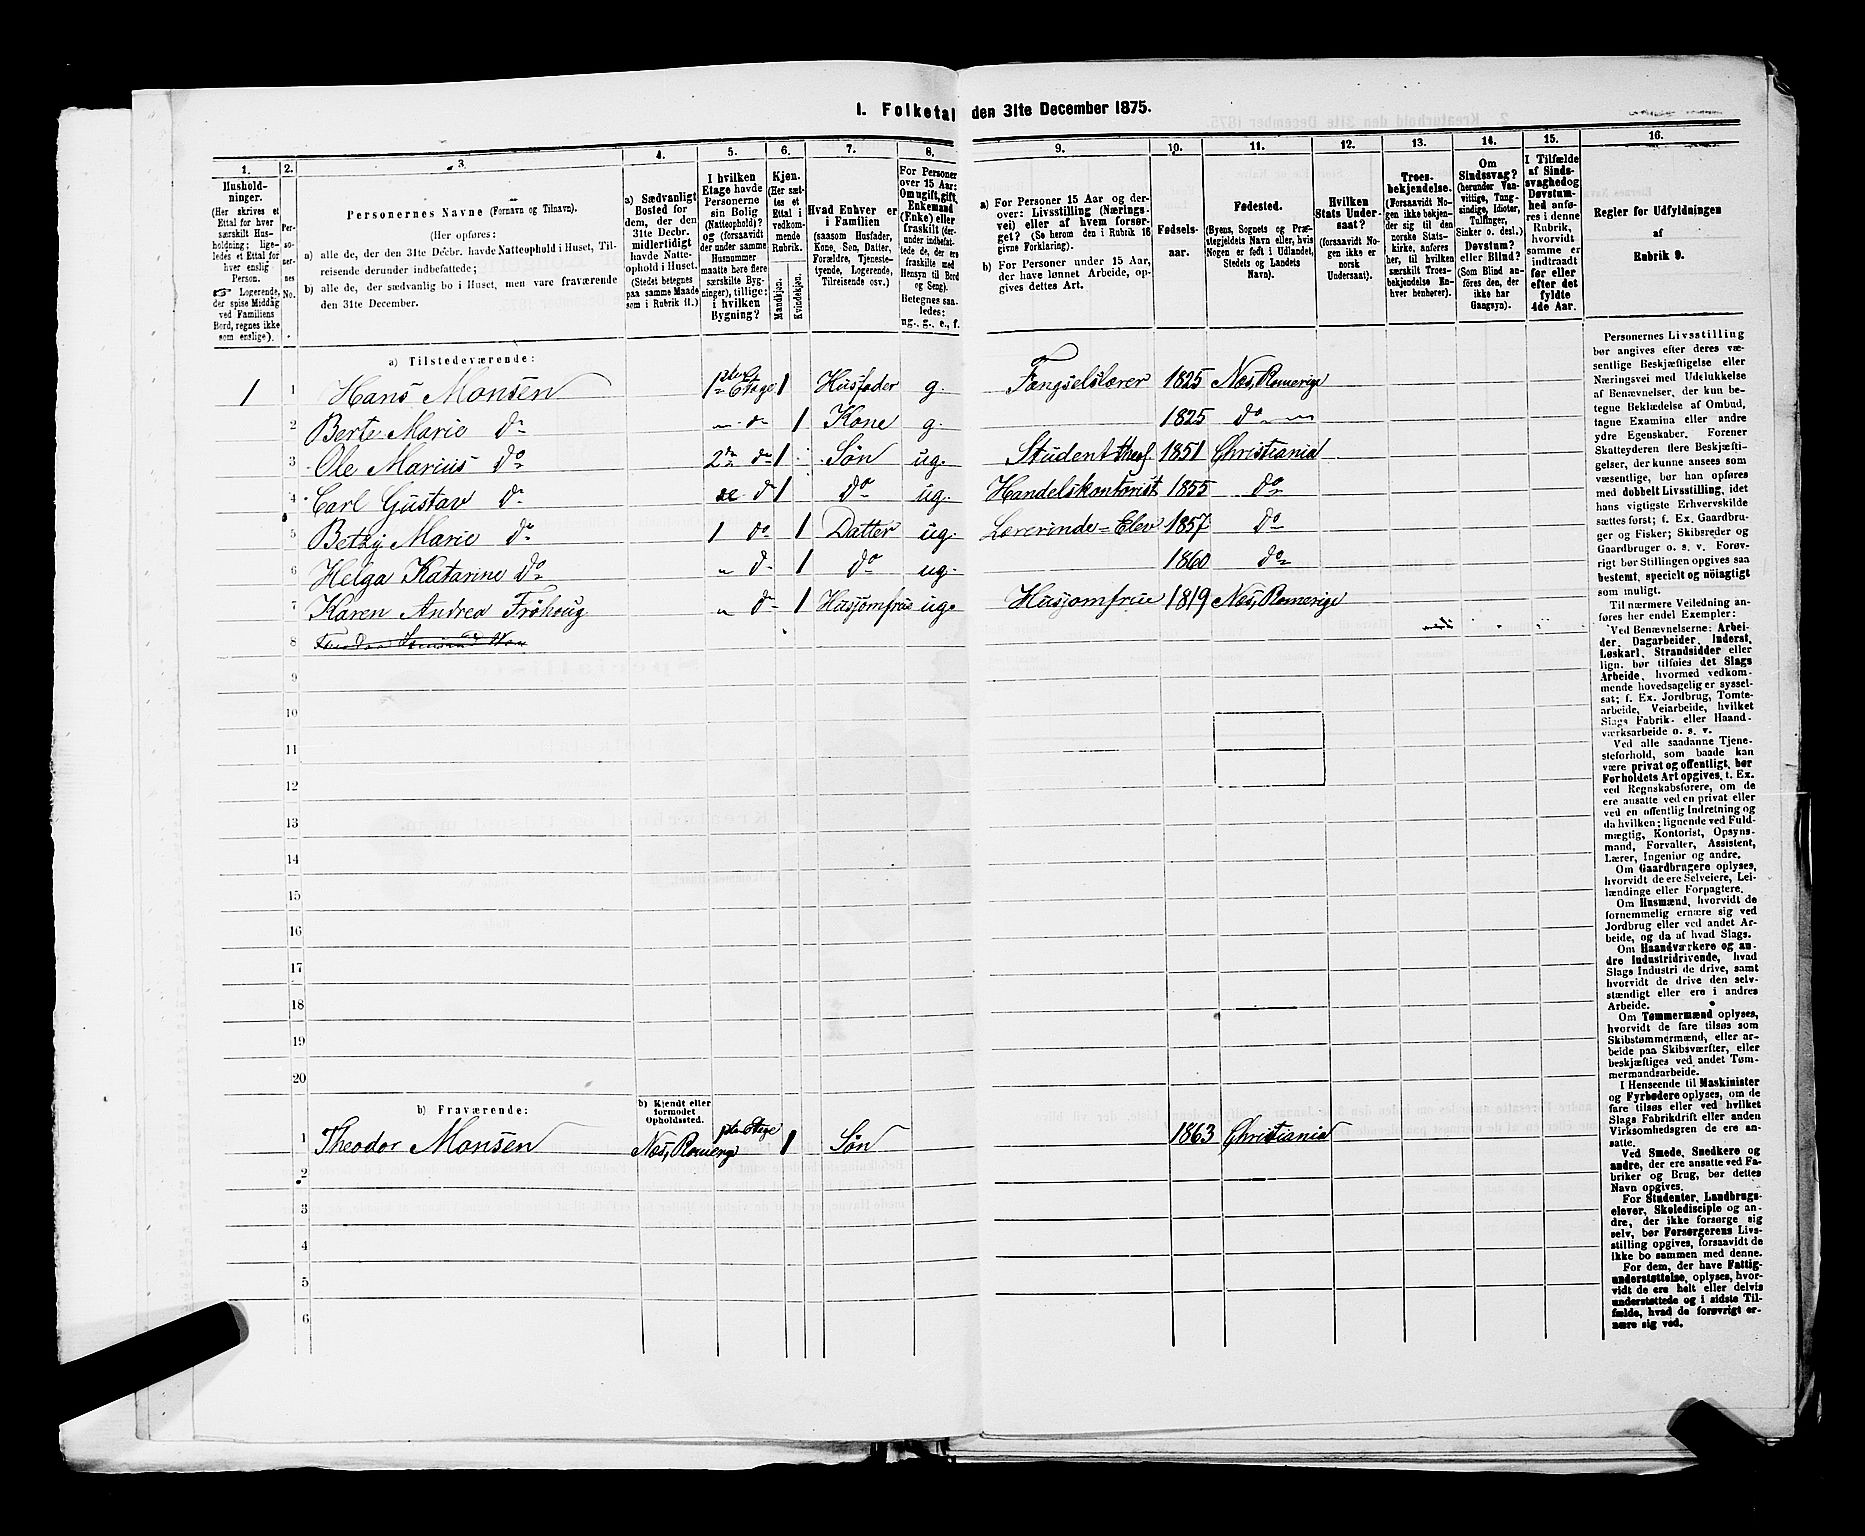 1. Folketal den 31te December 1875.
1. 2. 3. 4. 5. 6. 7. 8. 9. 10. 11. 12. 13. 14. 15. 16.
Hushold-
ninger.
(Her skrives et
Ettal for hver
særskilt Hus-
holdning; lige-
ledes et Ettal for
hver enslig
Person.
☞ Logerende,
der spise Middag
ved Familiens
Bord, regnes ikke
som enslige).
Per-
so-
ner-
nes
No.
Personernes Navne (Fornavn og Tilnavn).
(Her opføres:
a) alle de, der den 31te Decbr. havde Natteophold i Huset, Til-
reisende derunder indbefattede;
b) alle de, der sædvanlig bo i Huset, men vare fraværende
den 31te December.
a) Sædvanligt
Bosted for
dem, der den
31te Decbr.
midlertidigt
havde Natte-
ophold i Huset.
(Stedet betegnes
paa samme Maade
som i Rubrik 11.)
I hvilken
Etage havde
Personerne
sin Bolig
(Natteophold)?
og (forsaavidt
der under samme
Husnummer
maatte høre flere
særskilte Byg-
ninger), tillige:
i hvilken
Bygning?
Kjøn.
(Her sæt-
tes et
Ettal i
vedkom-
mende
Rubrik.
Mandkjøn.
Kvindekjøn.
Hvad Enhver er
i Familien
(saasom Husfader,
Kone, Søn, Datter,
Forældre, Tjeneste-
tyende, Logerende,
Tilreisende osv.)
For Personer
over 15 Aar:
Om ugift, gift,
Enkemand
(Enke) eller
fraskilt (der-
under indbefat-
tede de, der ere
fraskilte med
Hensyn til Bord
og Seng).
Betegnes saa-
ledes:
ug., g., e., f.
a) For Personer 15 Aar og der-
over: Livsstilling (Nærings-
vei) eller af hvem forsør-
get? (Se herom den i Rubrik 16
givne Forklaring).
b) For Personer under 15 Aar,
der have lønnet Arbeide, op-
gives dettes Art.
Fødsels-
aar.
Fødested.
(Byens, Sognets og Præ-
stegjeldets Navn eller, hvis
Nogen er født i Udlandet,
Stedets og Landets
Navn).
Hvilken
Stats Under-
saat?
(forsaavidt No-
gen ikke er
norsk
Undersaat).
Troes-
bekjendelse.
(Forsaavidt No-
gen ikke bekjen-
der sig til den
norske Stats-
kirke, anføres
her, til hvilken
særskilt Troes-
bekjendelse En-
hver henhører).
Om
Sindssvag?
(herunder Van-
vittige, Tung-
sindige, Idioter,
Tullinger,
Sinker o. desl.)
Døvstum?
eller Blind?
(Som Blind an-
føres den, der
ikke har
Gangsyn).
I Tilfælde
af Sinds-
svaghed og
Døvstum-
hed anfø-
res i denne
Rubrik,
hvorvidt
samme er
indtraadt
før eller
efter det
fyldte
4de Aar.
Regler for Udfyldningen
af
Rubrik 9.
a) Tilstedeværende:
1 1 Hans Monsen 1ste Etage 1 Husfader g. Fængselslærer 1825 Næs, Romerige
2 Berte Marie do " do 1 Kone g. 1825 do
3 Ole Marius do 2 do 1 Søn ug. Student theol 1851 Christiania
4 Carl Gustav do do 1 do ug. Handelskontorist 1855 do
5 Betzy Marie do 1 do 1 Datter ug. Lærerinde-Elev 1857 do
6 Helga Katarine do " do 1 do ug. 1860 do
7 Karen Andrea Frøhoug " do 1 Husjomfrue ug. Husjomfrue 1819 Næs, Romerige
8
9
10
11
12
13
14
15
16
17
18
19
20
b) Fraværende:
b) Kjendt eller
formodet
Opholdssted.
1 Theodor Monsen Næs, Romerige Etage 1 Søn 1863 Christiania
2
3
4
5
6
Personernes Livsstilling
bør angives efter deres væ-
sentlige Beskjæftigelse eller
Næringsvei med Udelukkelse
af Benævnelser, der kun be-
tegne Beklædelse af Ombud,
tagne Examina eller andre
ydre Egenskaber. Forener
Skatteyderen flere Beskjæfti-
gelser, der kunne ansees som
væsentlige, bør han opføres
med dobbelt Livsstilling, idet
hans vigtigste Erhvervskilde
sættes først; f. Ex. Gaardbru-
ger og Fisker; Skibsreder og
Gaardbruger o. s. v. Forøv-
rigt bør Stillingen opgives saa
bestemt, specielt og nøiagtigt
som muligt.
Til nærmere Veiledning an-
føres her endel Exempler:
Ved Benævnelserne: Arbei-
der, Dagarbeider, Inderst,
Løskarl, Strandsidder eller
lign. bør tilføies det Slags
Arbeide, hvormed vedkom-
mende hovedsagelig er syssel-
sat; f. Ex. Jordbrug, Tomte-
arbeide, Veiarbeide, hvilket
Slags Fabrik- eller Haand-
værksarbeide o. s. v.
Ved alle saadanne Tjene-
steforhold, som baade kan
være privat og offentligt, bør
Forholdets Art opgives, t. Ex.
ved Regnskabsførere, om de
ere ansatte ved en privat eller
ved en offentlig Indretning og
da hvilken; lignende ved Fuld-
mægtig, Kontorist, Opsyns-
mand, Forvalter, Assistent,
Lærer, Ingeniør og andre.
Om Gaardbrugere oplyses,
hvorvidt de ere Selveiere, Lei-
lændinge eller Forpagtere.
Om Husmænd, hvorvidt de
fornemmelig ernære sig ved
Jordbrug eller ved andet Ar-
beide, og da af hvad Slags.
Om Haandværkere og an-
dre Industridrivende, hvad
Slags Industri de drive, samt
hvorvidt de drive den selv-
stændigt eller ere i andres
Arbeide.
Om Tømmermænd oplyses,
hvorvidt de fare tilsøs som
Skibstømmermænd, eller ar-
beide paa Skibsværfter, eller
beskjæftiges ved andet Tøm-
mermandsarbeide.
I Henseende til Maskinister
og Fyrbødere oplyses, om de
fare tilsøs eller ved hvilket
Slags Fabrikdrift eller anden
Virksomhedsgren de ere an-
satte.
Ved Smede, Snedkere og
andre, der ere ansatte ved Fa-
briker og Brug, bør dettes
Navn opgives.
For Studenter, Landbrugs-
elever, Skoledisciple og an-
dre, der ikke forsørge sig
selv, bør Forsørgerens Livs-
stilling opgives, forsaavidt de
ikke bo sammen med denne.
For dem, der have Fattig-
understøttelse, oplyses, hvor-
vidt de ere helt eller delvis
understøttede og i sidste Til-
fælde, hvad de forøvrigt er-
nære sig ved.